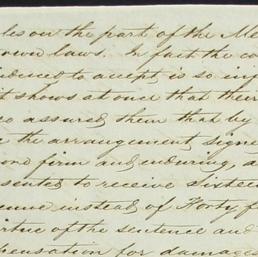 les on the part of the Me
own laws. In fact the co
duced to accept is so inf
it shows at once that their
so assured them that by
e the arrangement signe
ond firm and enduring, a
sented to receive sixteen
enue instead of Forty f
irtue of the sentence and
pensation for damages